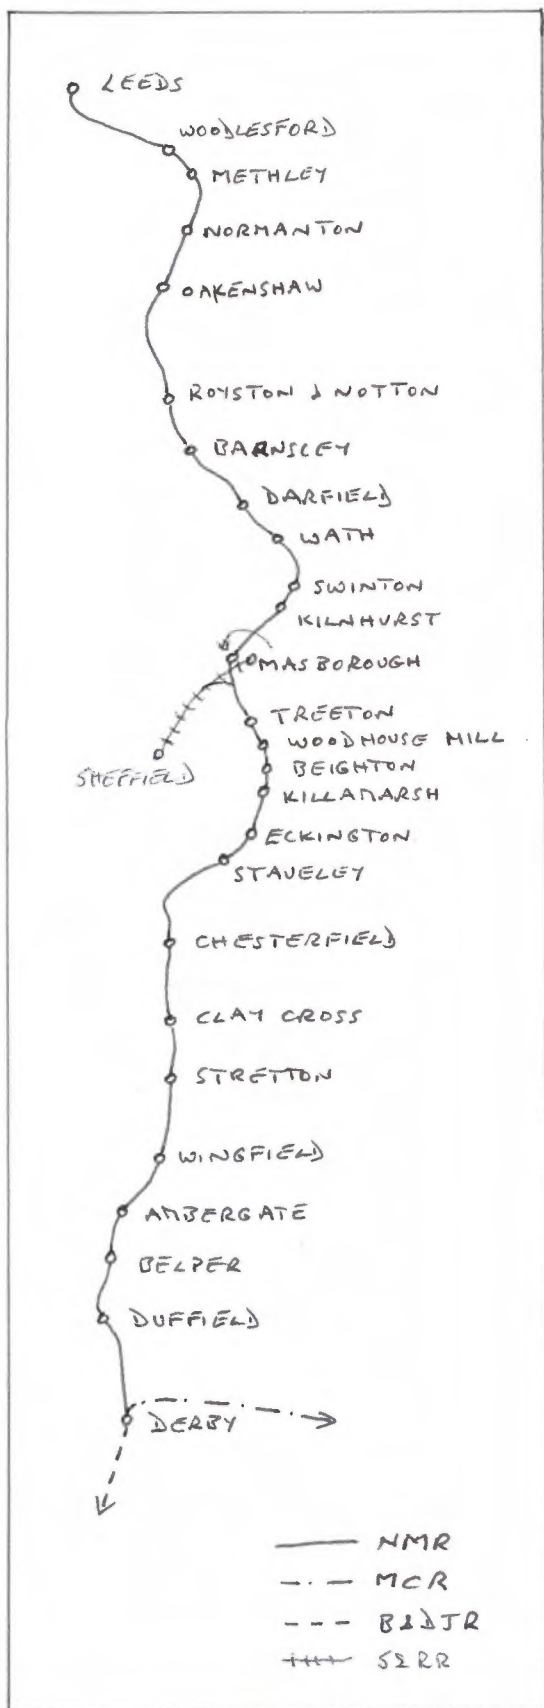 LEEDS
WOODLESFORD
METHLEY
NORMANTON
OAKENSHAW
ROYSTON & NOTTON
BARNSLEY
DARFIELD
WATH
SWINTON
KILNHURST
MASBOROUGH
TREETON
WOODHOUSE MILL
SHEFFIELD
BEIGHTON
KILLAMARSH
ECKINGTON
STAVELEY
CHESTERFIELD
CLAY CROSS
STRETTON
WINGFIELD
AMBERGATE
BELPER
DUFFIELD
DERBY
NMR
MCR
B&DJR
S&RR